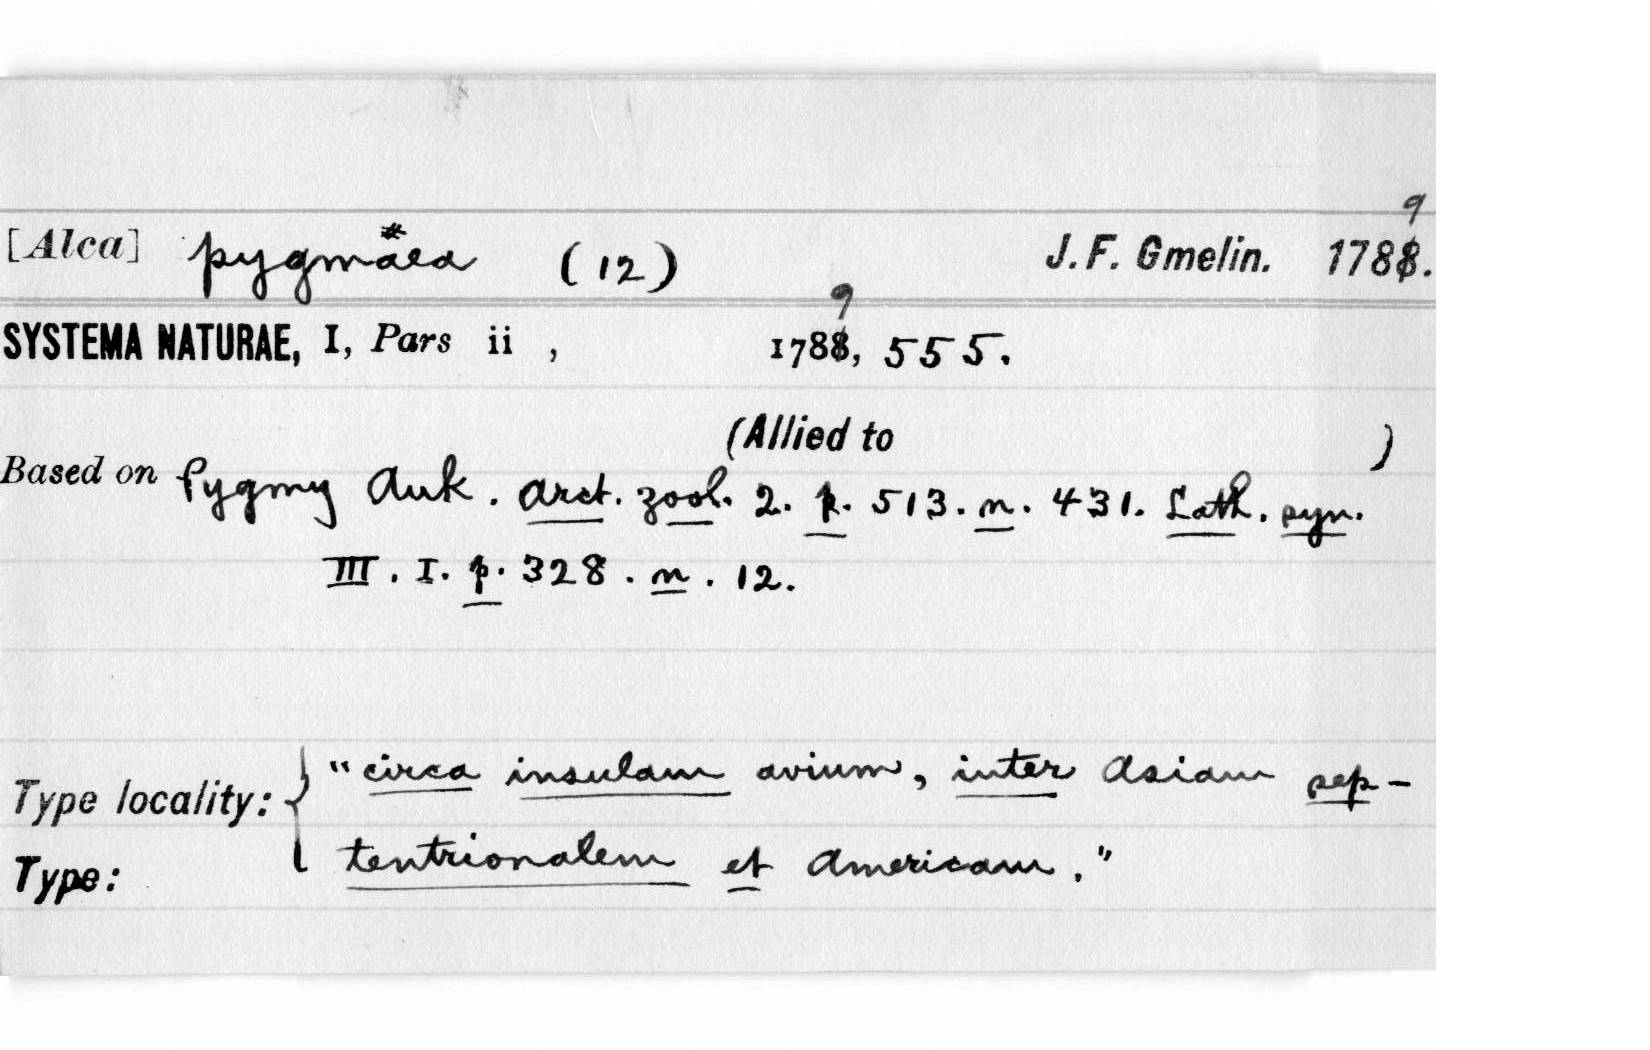 [Alca] pygmæa (12) J. F. Gmelin. 1789.
SYSTEMA NATURAE, I, Pars ii , 1789, 555.
(Allied to )
Based on Pygmy Auk. Arct. zool. 2. p. 513. n. 431. Lath. syn.
III. I. p. 328. n. 12.
Type locality: { "circa insulam avium, inter Asiam sep-
Type: tentrionalem et Americam."